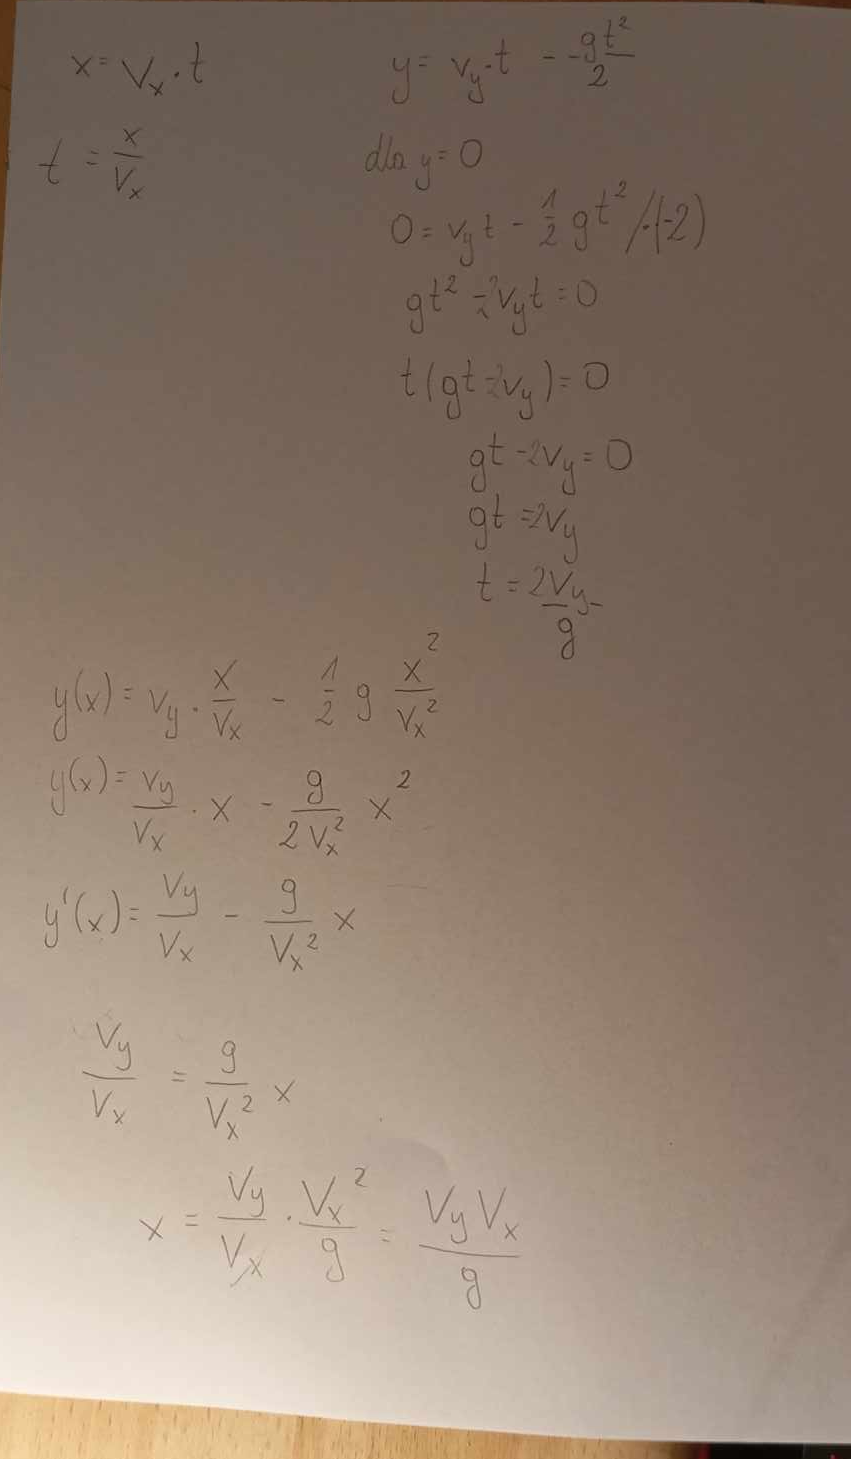 x = Vx · t
t = x/Vx
y = vy · t - gt²/2
dla y = 0
0 = vy t - 1/2 gt² /·(-2)
gt² - 2vy t = 0
t(gt - 2vy) = 0
gt - 2vy = 0
gt = 2vy
t = 2vy/g
y(x) = vy · x/Vx - 1/2 g x²/Vx²
y(x) = vy/Vx · x - g/2Vx² x²
y'(x) = vy/Vx - g/Vx² x
Vy/Vx = g/Vx² x
x = Vy/Vx · Vx²/g = VyVx/g